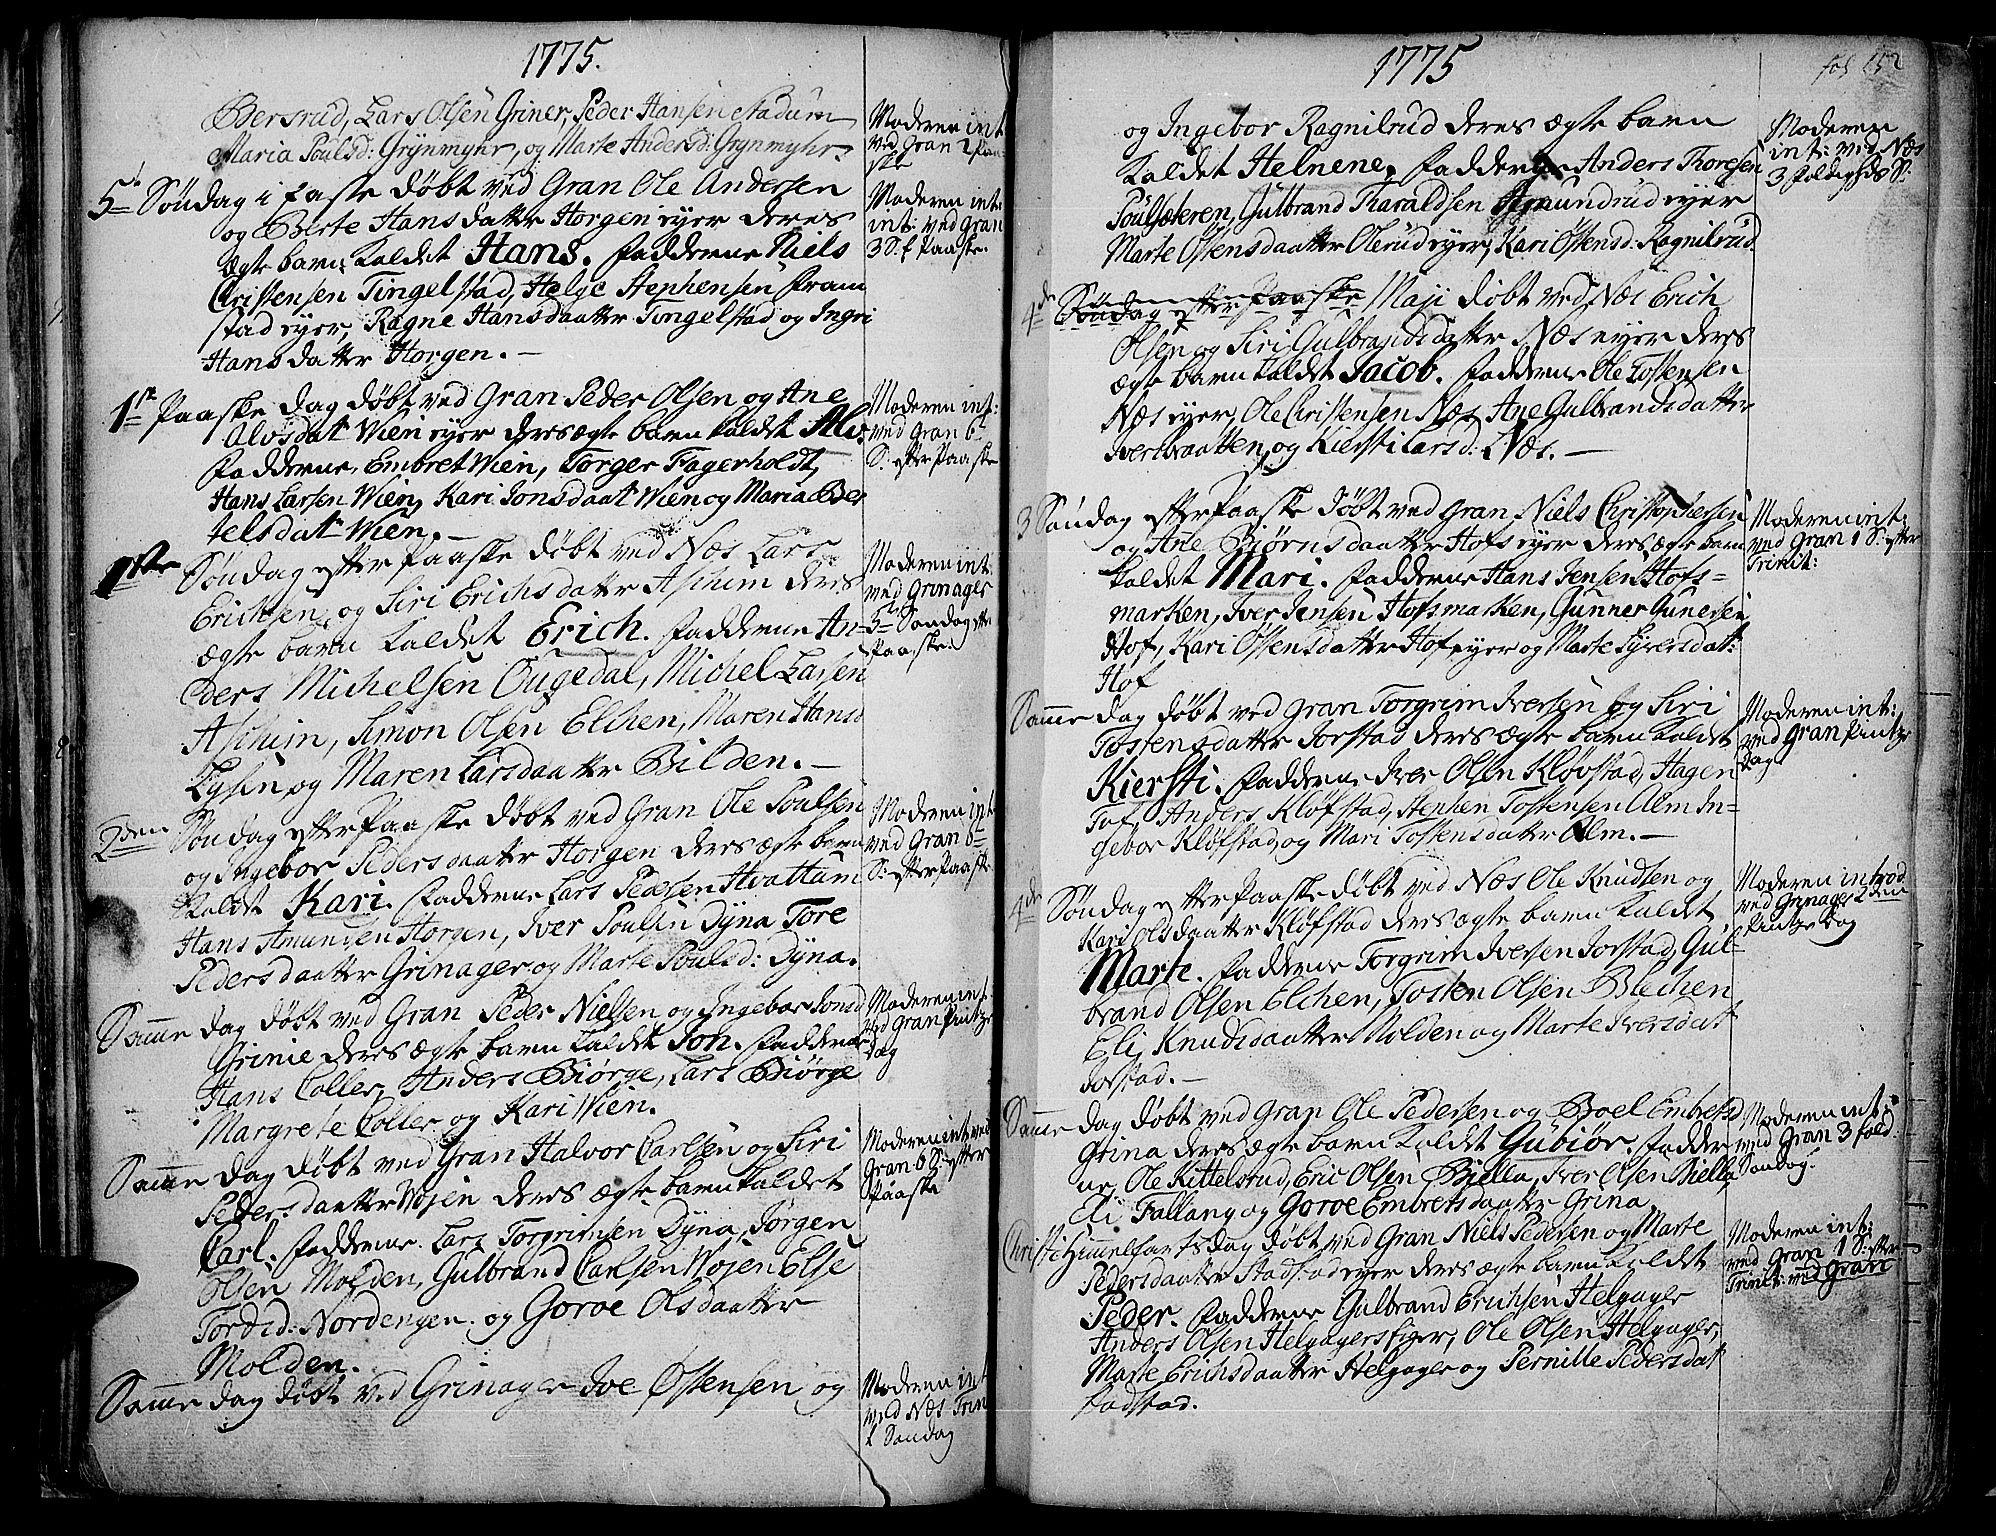 1775.
Bersrud, Lars Olsen Griner, Peder Hansen Nadum
Maria Poulsd: Grynmyhr, og Marte Andersd: Grynmyhr.
Moderen int
ved Gran 2 Paa-
ske
5te Søndag i faste døbt ved Gran Ole Andersen
og Berte Hansdatter Horgen eyer deres
ægte barn kaldet Hans. Fadderne Niels
Christensen Tingelstad, Helge Stephensen Fram
stad eyer, Ragne Hansdaatter Tingelstad og Ingri
Hansdatter Horgen.-
Moderen int:
int: ved Gran
3 S: f Paaske.
1te Paaske dag døbt ved Gran Peder Olsen og Ane
Alvsdatr Wien eyer deres ægte barn kaldet Alv.
Fadderne Embret Wien, Torger Fagerholdt,
Hans Larsen Wien, Kari Jonsdaatr Wien og Maria Ber
telsdatr Wien.-
Moderen int:
ved Gran 6te
S: efter Paaske
1ste Søndag efter Paaske døbt ved Næs Lars
Erichsen og Siri Erichsdatter Aschim deres
ægte barn kaldet Erich. Fadderne An-
ders Michelsen Ougedal, Michel Larsen
Aschim, Simon Olsen Elchen, Maren Hansd
Lysen og Maren Larsdaatter Bilden.-
Moderen int:
ved Grinager
5te Søndag efter
Paaske.
2den Søndag efter Paaske døbt ved Gran Ole Poulsen
og Ingebor Pedersdaatter Horgen deres ægte barn
kaldet Kari. Fadderne Lars Pedersen Hvattum
Hans Amunsen Horgen, Iver Poulsen Dyna Tore
Pedersdaatter Grinager og Marte Poulsd: Dyna.
Moderen int
ved Gran 6te
S: efter Paaske
Samme dag døbt ved Gran Peder Nielsen og Ingebor Jonsd
Grinie deres ægte barn kaldet Jon. Fadderne
Hans Coller, Anders Biørge, Lars Biørge
Margrete Coller og Kari Wien.
Moderen int.
ved Gran Pintze
dag
Samme dag døbt ved Gran Halvor Carlsen og Siri
Pedersdaatter Wøien deres ægte barn kaldet
Carl. Fadderne Lars Torgrimsen Dyna, Jørgen
Olsen Molden, Gulbrand Carlsen Wøien Else
Tordsd: Nordengen og Goroe Olsdaatter
Molden.
Moderen int: ved
Gran 6 S: efter
Paaske
Samme dag døbt ved Grinager Ive Østensen og
Moderen int
ved Næs Trin
t Søndag
1775
fol 152
og Ingebor Ragnilrud deres ægte barn
kaldet Helnene. Fadderne Anders Thoresen
Poulsæteren, Gulbrand Tharaldsen Amundrud eyer
Marte Østensdaatter Olerud eyer, Kari Østensd: Ragnilrud
Moderen
int: ved Næs
3 foldigheds S:
4de Søndag efter Paaske Maji døbt ved Næs Erich
Olsen og Siri Gulbrandsdatter Næs eyer deres
ægte barn kaldet Jacob. Fadderne Ole Tostensen
Næs eyer, Ole Christensen Næs, Ane Gulbrandsdatter
Iversbraatten og Kiersti Larsd: Næs.-
3 Søndag efter Paaske døbt ved Gran Niels Christophersen
og Ane Biørnsdaatter Hofs eyer deres ægte barn
kaldet Mari. Fadderne Hans Jensen Hofs-
marken, Iver Jensen Hofsmarken, Gunner Gunersen
Hof, Kari Østensdatter Hof eyer og Marte Syversdat:
Hof
Moderen int:
ved Gran 1 S: efter
Trinit:
Samme dag døbt ved Gran Torgrim Iversen og Siri
Tostensdatter Jorstad deres ægte barn kaldet
Kiersti. Fadderne Iver Olsen Kløvstad, Hagen
Tof, Anders Kløfstad, Stephen Tostensen Alm In-
gebor Kløfstad og Mari Tostensdatter Alm.-
Moderen int:
ved Gran Pintze
dag
4de Søndag efter Paaske døbt ved Næs Ole Knudsen og
Kari Olsdaatter Kløfstad deres ægte barn kaldet
Marte. Fadderne Torgrim Iversen Jorstad, Gul-
brand Olsen Elchen, Tosten Olsen Blechen
Eli Knudsdaatter Molden og Marte Iversdat
Jorstad.-
Moderen introd
ved Grinager 2den
Pintze dag
Samme dag døbt ved Gran Ole Pedersen og Boel Embretsd
Grina deres ægte barn kaldet Gubiør. Fadder
ne Ole Kittelsrud, Eric Olsen Biella, Iver Olsen Biella
Eli Fallang og Goroe Embretsdaatter Grina
Moderen int:
ved Gran 3 fold
Søndag.
Christi Himmelfarts dag døbt ved Gran Niels Pedersen og Marte
Pedersdaatter Stadstad eyer deres ægte barn kaldet
Peder. Fadderne Gulbrand Erichsen Helgager
Anders Olsen Helgagers eyer, Ole Olsen Helgager,
Marte Erichsdaatter Helgager og Pernille Pedersdat
Stadstad.
Moderen int:
ved Gran 1 S: efter
Trinit: ved Gran